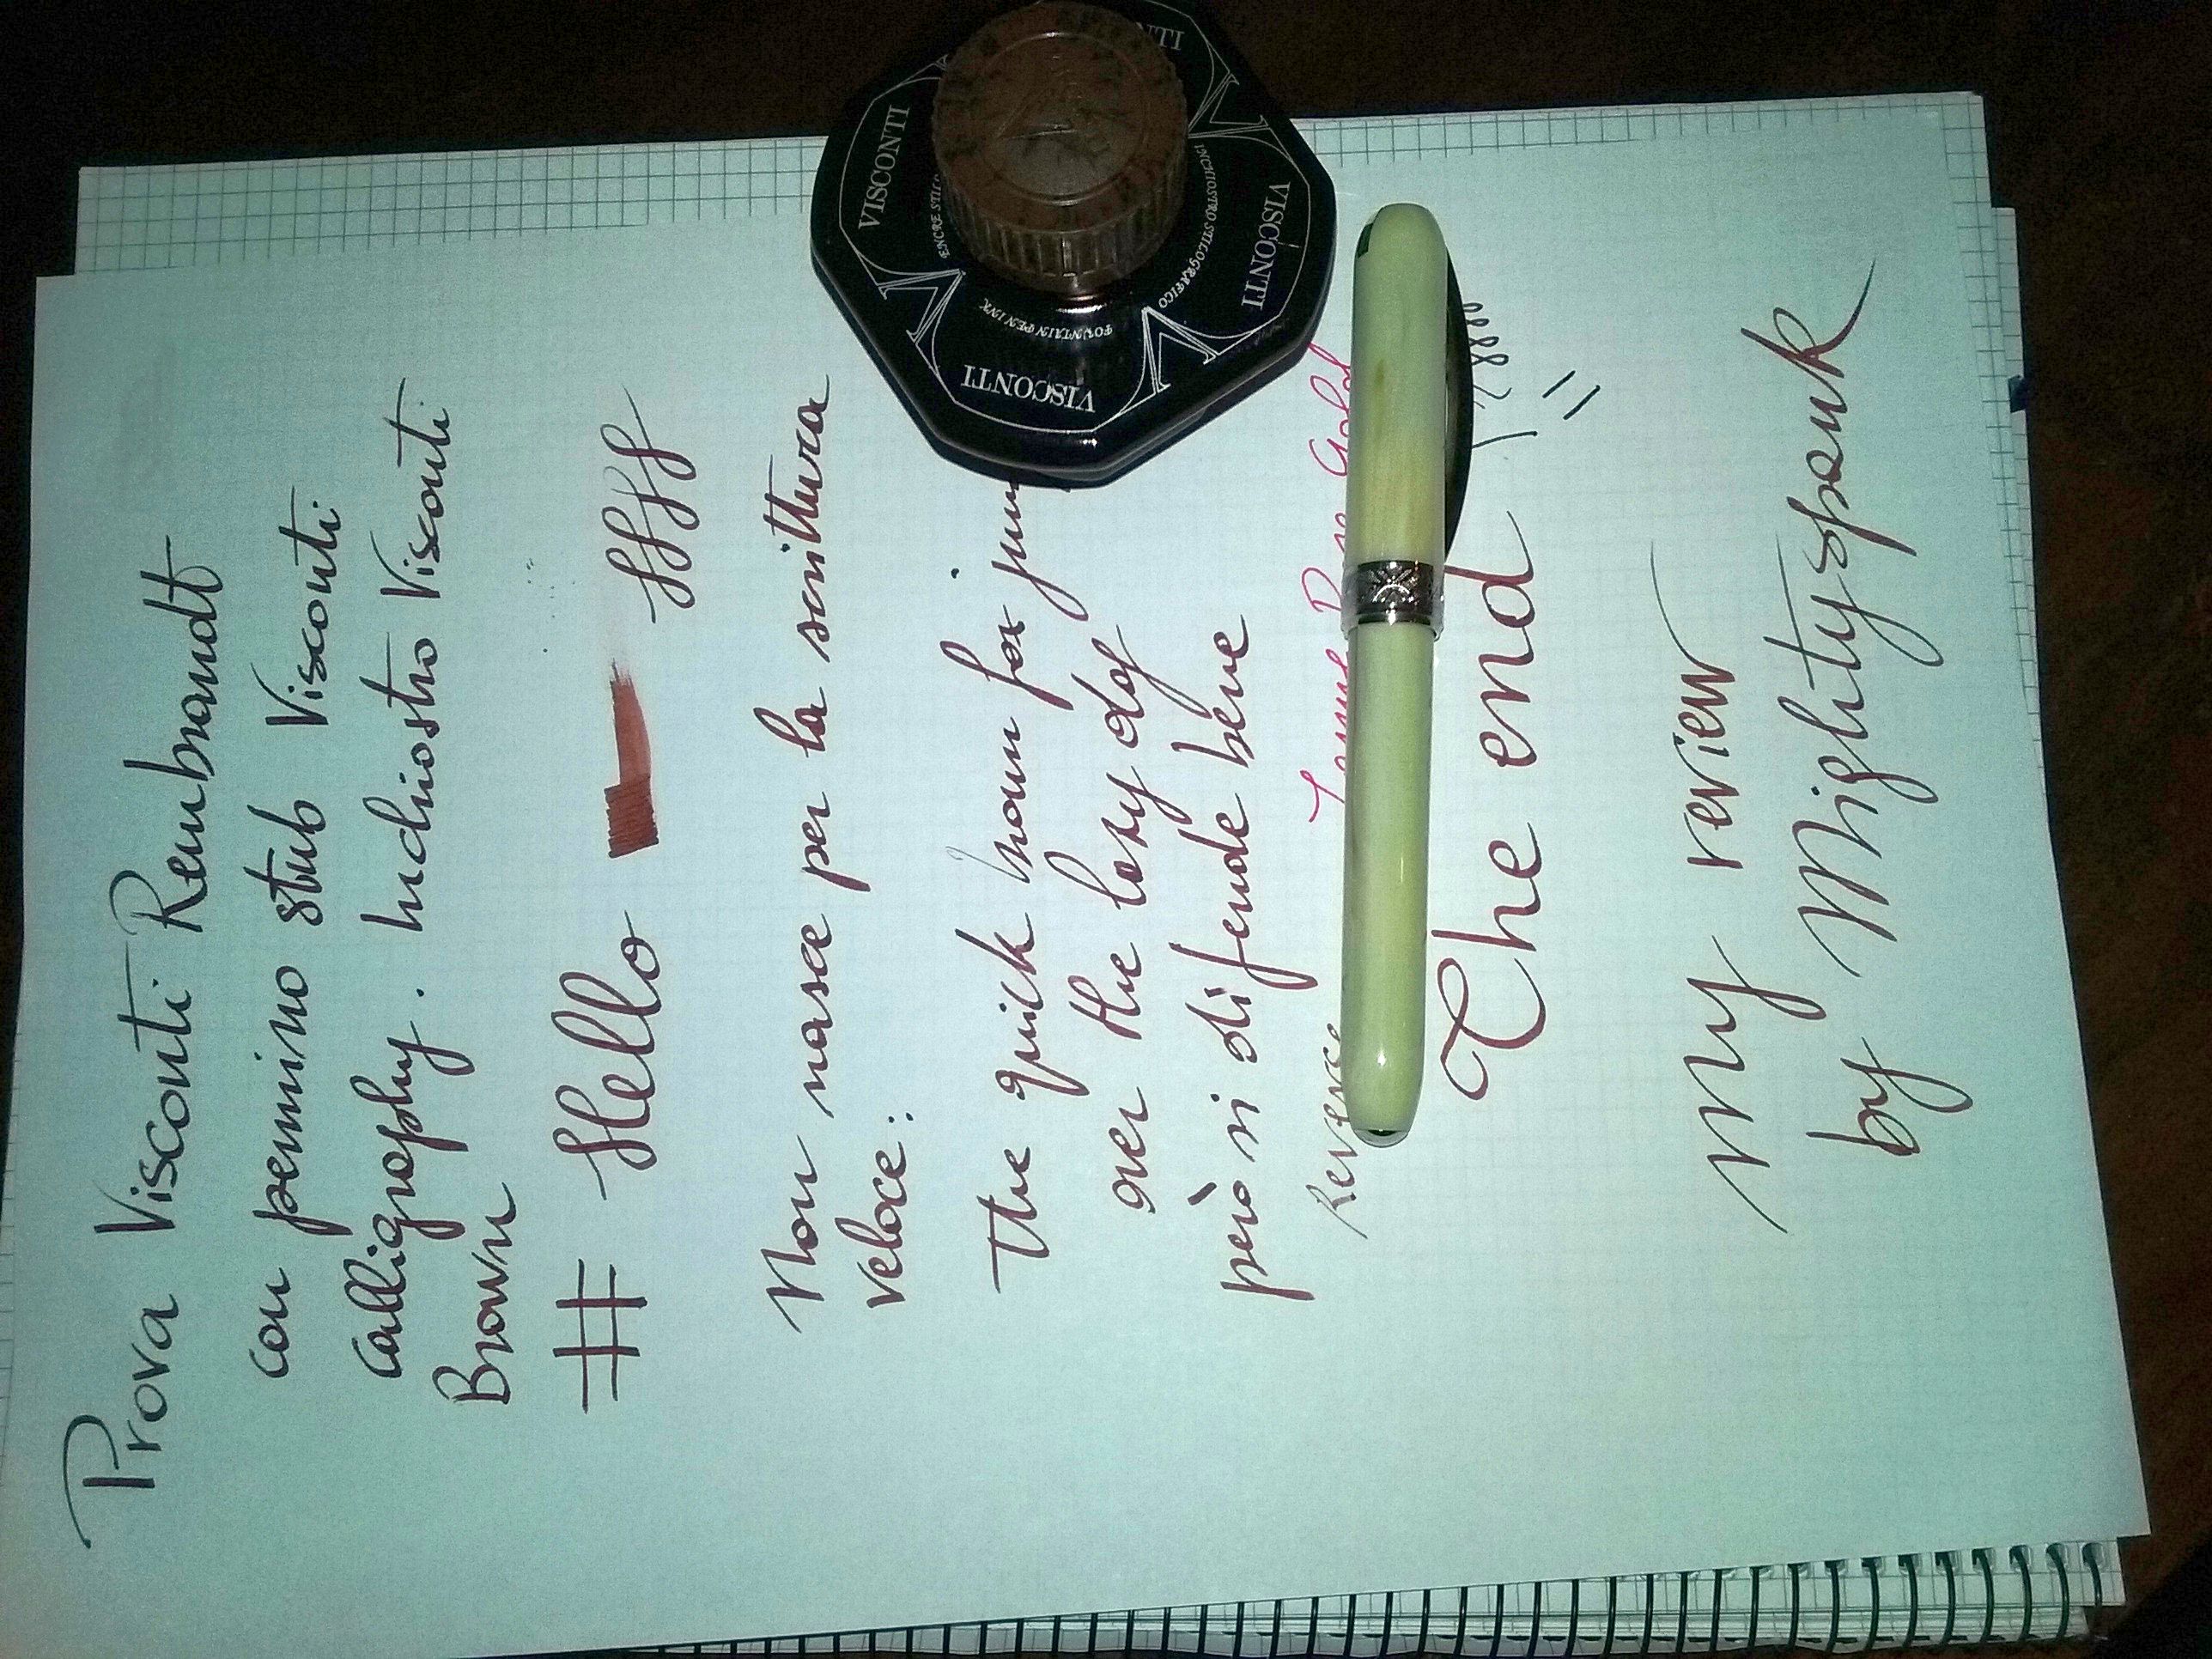 Prova Visconti Rembrandt
con pennino stub Visconti
Calligraphy. Inchiostro Visconti
Brown
# Hello ffff
Non nasce per la scrittura
veloce:
The quick brown fox jum
over the lazy dog
però si difende bene
Reverse
Gold
The end
My review
by Mightyspank
VISCONTI
VISCONTI
VISCONTI
NTI
ENCRE STILO
FOUNTAIN PEN INK
INCHIOSTRO STILOGRAFICO